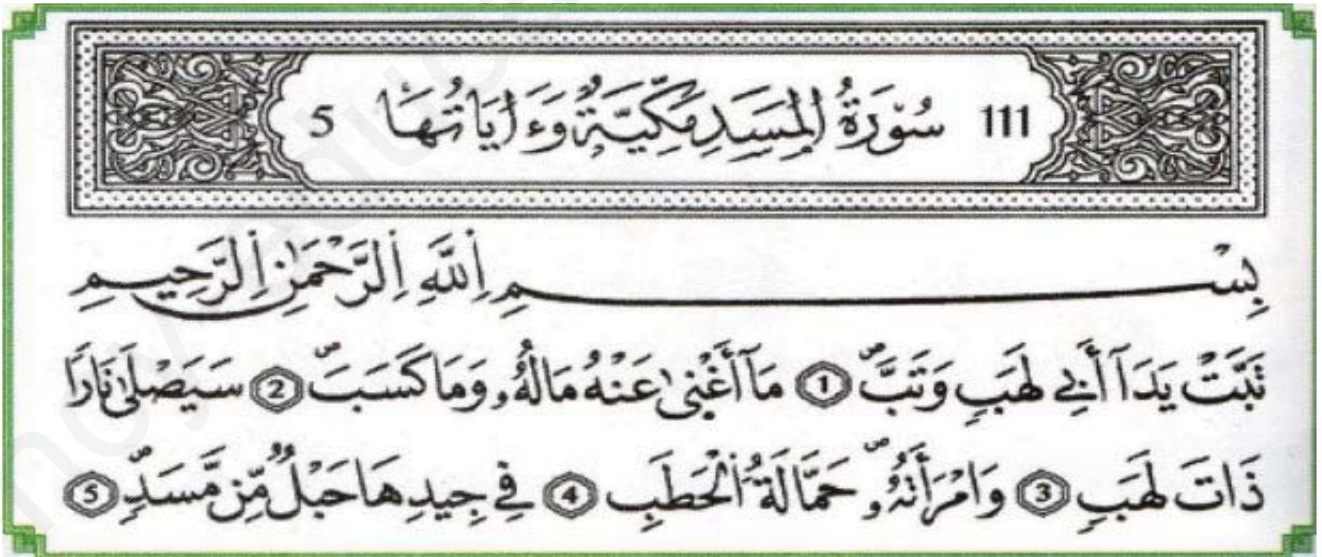 111 سُورَةُ الْمَسَدِ مَكِّيَّةٌ وَءَايَاتُهَا 5
بِسْمِ اِللَّهِ اِلرَّحْمَٰنِ اِلرَّحِيمِ
تَبَّتْ يَدَآ أَبِے لَهَبٍ وَتَبَّ 1 مَآ أَغْنَىٰ عَنْهُ مَالُهُۥ وَمَا كَسَبَ 2 سَيَصْلَىٰ نَارًا
ذَاتَ لَهَبٍ 3 وَامْرَأَتُهُۥ حَمَّالَةُ اُلْحَطَبِ 4 فِے جِيدِهَا حَبْلٌ مِّن مَّسَدٍ 5